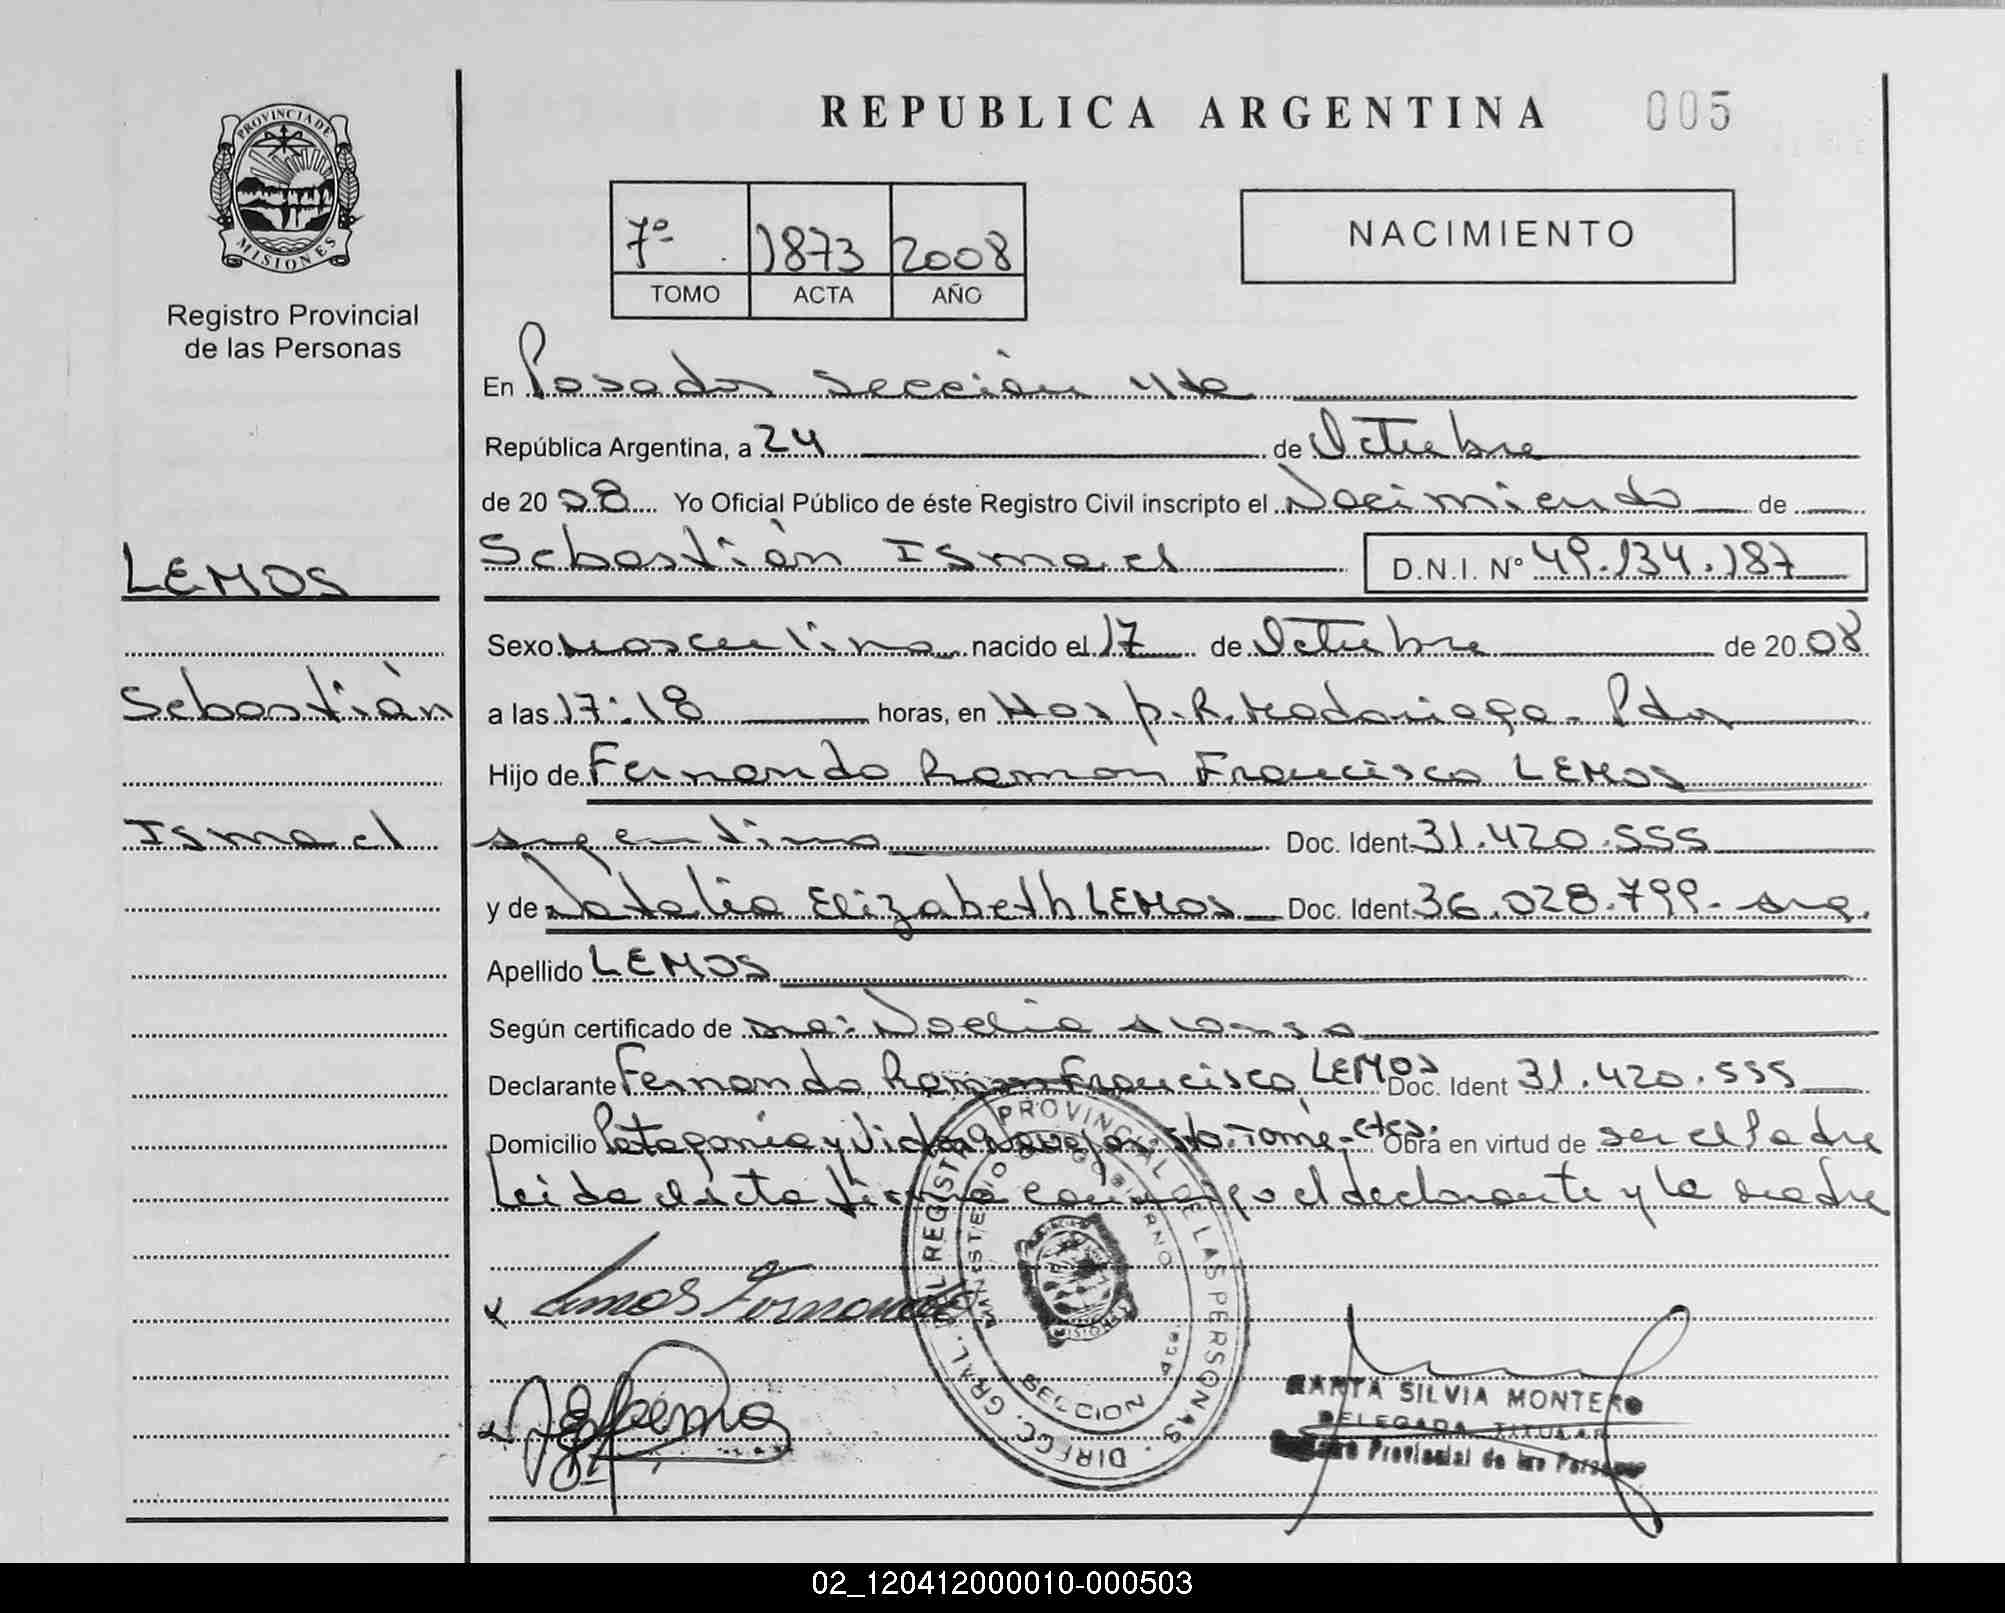 REPUBLICA ARGENTINA 005
PROVINCIA DE
MISIONES
Registro Provincial
de las Personas
7º 1873 2008
TOMO ACTA AÑO
NACIMIENTO
En Posadas sección 4ta
República Argentina, a 24 de Octubre
de 2008 Yo Oficial Público de éste Registro Civil inscripto el Nacimiento de
LEMOS
Sebastián Ismael D.N.I. Nº 49.134.187
Sexo Masculino nacido el 17 de Octubre de 2008
Sebastián
a las 17:18 horas, en Hosp. R. Madariaga - Pdas
Hijo de Fernando Ramon Francisco LEMOS
Ismael
argentino Doc. Ident 31.420.555
y de Natalia Elizabeth LEMOS Doc. Ident 36.028.799 - arg.
Apellido LEMOS
Según certificado de Noelia Alonso
Declarante Fernando Ramon Francisco LEMOS Doc. Ident 31.420.555
Domicilio Patagonia y Victor Sto. Tomé - Ctes. Obra en virtud de ser el Padre
Leida el acta firma conmigo el declarante y la madre
x Lemos Fernando
DIRECC. GRAL. DEL REGISTRO PROVINCIAL DE LAS PERSONAS
MINISTERIO DE GOBIERNO
MISIONES
SECCION 4ta.
MARTA SILVIA MONTERO
DELEGADA TITULAR
Registro Provincial de las Personas
02_120412000010-000503